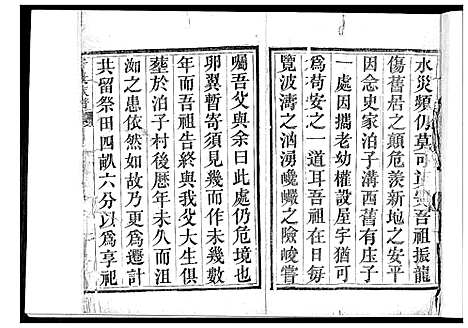 水災頻仍莫可
吾祖振龍
傷舊居之顛危羨新地之安平
因念史家泊子溝西舊有庄子
一處因攜老幼權設屋宇猶可
爲苟安之一道耳吾祖在日每
覽波濤之洶湧巉巗之險峻嘗
囑吾父與余曰此處仍危境也
卵翼暫寄須見幾而作未幾數
年而吾祖告終與我父大生俱
塟於泊子村後歷年久而沮
洳之患依然如故乃更爲遷計
共留祭田四畝六分以爲享祀